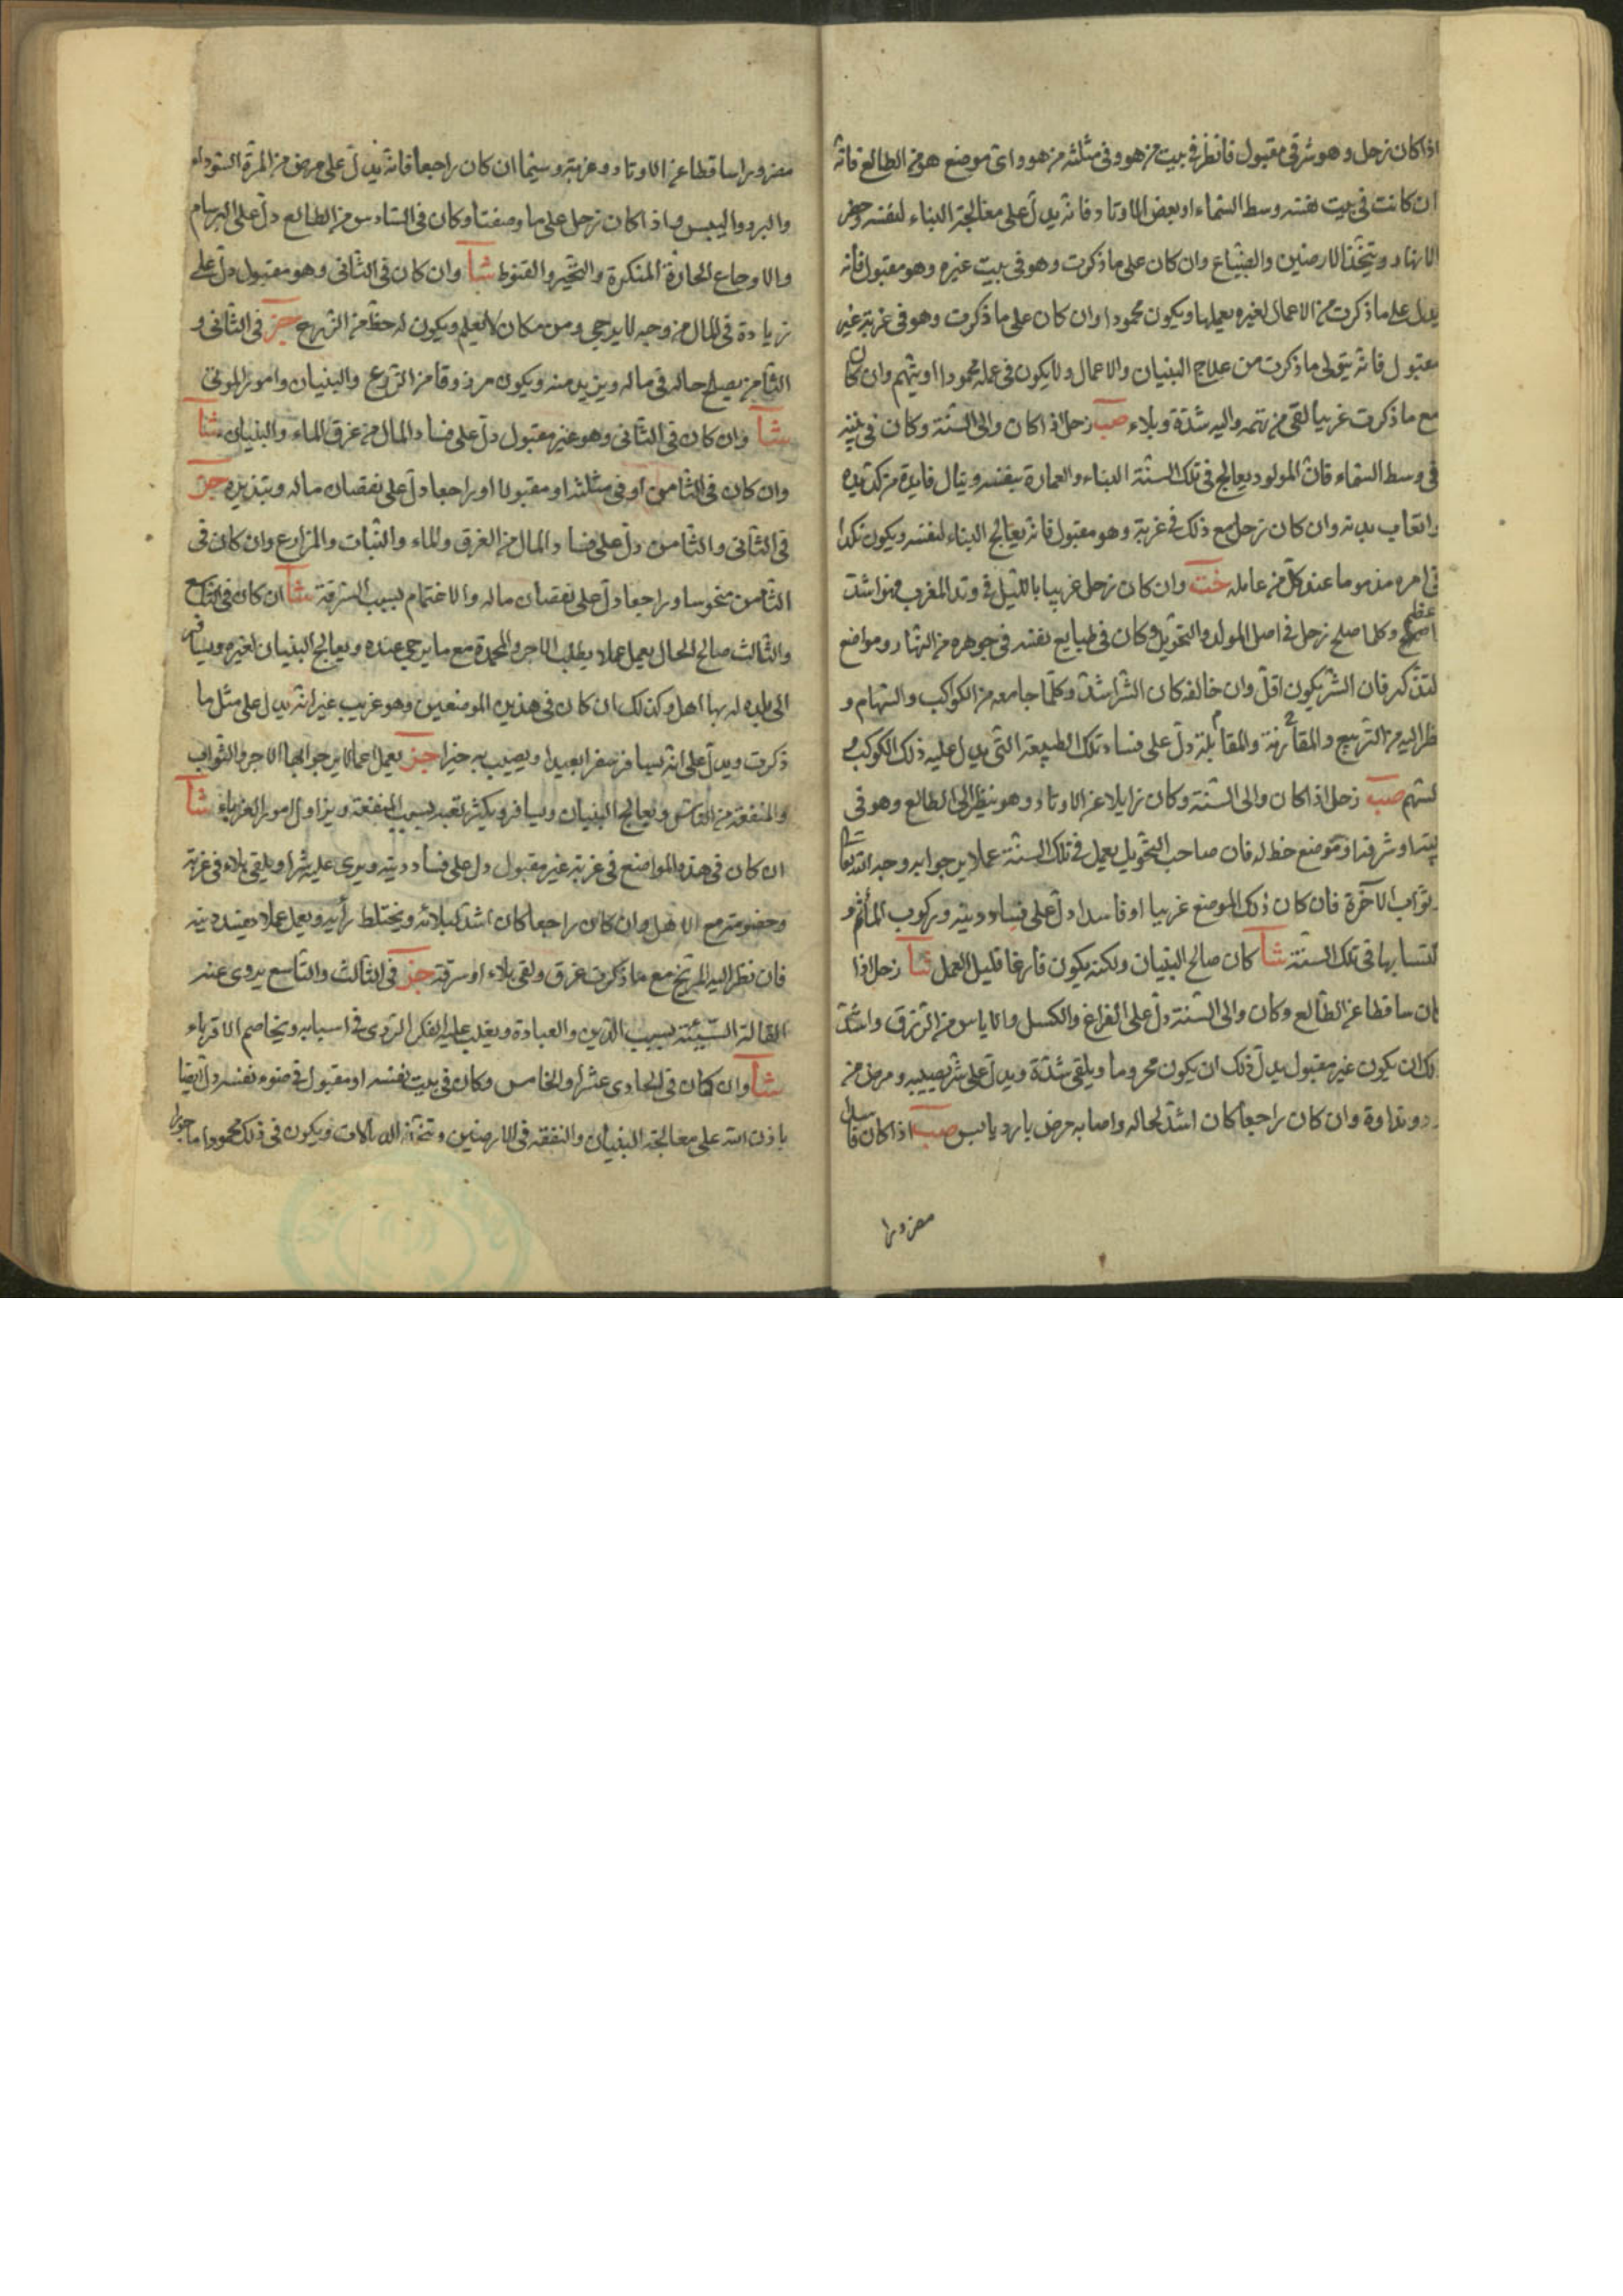 اذا كان زحل وهو شرقى مقبول فانظر فى بيت من هو وفى مثلثه من هو واى موضع هو من الطالع فانه
ان كانت فى بيت نفسه وسط السماء او بعض الاوتاد فانه يدل على معالجة البناء لنفسه وحفر
الانهار ويتخذ الارضين والضياع وان كان على ما ذكرت وهو فى بيت غيره وهو مقبول فانه
يدل على ما ذكرت من الاعمال لغيره يعملها ويكون محمودا وان كان على ما ذكرت وهو فى غربته غير
مقبول فانه يتولى ما ذكرت من علاج البنيان والاعمال ولا يكون فى عمله محمودا او يتهم وان كان
مع ما ذكرت غريبا لقى من تهمه واليه شدة وبلاء صب زحل اذا كان والى السنة وكان فى بيته
فى وسط السماء فان المولود يعالج فى تلك السنة البناء والعمارة بنفسه وينال فايدة من كد يديه
واتعاب بدنه وان كان زحل مع ذلك فى غربته وهو مقبول فانه يعالج البناء لنفسه ويكون نكدا
فى امره مذموما عند كل من عامله خت وان كان زحل غريبا بالليل فى وتد المغرب فهو اشد
عظم
وكلما صلح زحل فى اصل المولد والتحويل وكان فى طبايع نفسه فى جوهره من النهار ومواضع
لتذكير فان الشر يكون اقل وان خالفه كان الشر اشد وكلما جامعه من الكواكب والسهام و
نظر اليه من التربيع والمقارنة والمقابلة دل على فساد تلك الطبيعة التى يدل عليه ذلك الكوكب
لسهم صب زحل اذا كان والى السنة وكان زايلا عن الاوتاد وهو ينظر الى الطالع وهو فى
بيته او شرفه او موضع حظ له فان صاحب التحويل يعمل فى تلك السنة عملا يرجوا به وجه الله تعالى
وثواب الآخرة فان كان ذلك الموضع غريبا او فاسدا دل على فساد دينه وركوب المأثم و
كتسابها فى تلك السنة شا كان صالح البنيان ولكنه يكون فارغا قليل العمل شا زحل اذا
كان ساقطا عن الطالع وكان والى السنة دل على الفراغ والكسل والاياس من الرزق واشد
لك ان يكون غير مقبول يدل ذلك ان يكون محروما ويلقى شدة ويدل على شر يصيبه ومرض من
رد ونداوة وان كان راجعا كان اشد لحاله واصابه مرض بارد يابس صب اذا كان فاسدا
مضرورا
مضرورا ساقطا عن الاوتاد وغربته وسيما ان كان راجعا فانه يدل على مرض من المرة السوداء
والبرد واليبس واذا كان زحل على ما وصفنا وكان فى السادس من الطالع دل على البرسام
والاوجاع الحادة المنكرة والتحير والقنوط شا وان كان فى الثانى وهو مقبول دل على
زيادة فى المال من وجه لا يرجى ومن مكان لا يعلم ويكون له حظ من الزرع جز فى الثانى و
الثامن يصلح حاله فى ماله ويزيد منه ويكون مرزوقا من الزرع والبنيان وامور الموتى
شا وان كان فى الثانى وهو غير مقبول دل على فساد المال من غرق الماء والبنيان شا
وان كان فى الثامن او فى مثلثه او مقبولا او راجعا دل على نقصان ماله وتبذيره جز
فى الثانى والثامن دل على فساد المال من الغرق والماء والنبات والمزارع وان كان فى
الثامن منحوسا وراجعا دل على نقصان ماله والاغتمام بسبب السرقة شا ان كان فى التاسع
والثالث صالح الحال يعمل عملا يطلب الاجر والمحمدة مع ما يرجى عنده ويعالج البنيان لغيره ويسافر
الى بلده له بها اهل وكذلك ان كان فى هذين الموضعين وهو غريب غير انه يدل على مثل ما
ذكرت ويدل على انه يسافر سفرا بعيدا ويصيب به خيرا جز يعمل اعمالا يرجوا بها الاجر والثواب
والمنفعة من الناس ويعالج البنيان ويسافر ويكثر تعبه بسبب المنفعة ويزاول امور الغرباء شا
ان كان فى هذه المواضع فى غربته غير مقبول دل على فساد دينه ويرى عليه شرا ويلقى بلاء فى غربة
وخصومة مع الاهل وان كان راجعا كان اشد لبلائه ويختلط رأيه ويعمل عملا يفسد دينه
فان نظر اليه المريخ مع ما ذكرت غرق ولقى بلاء او سرقة جز فى الثالث والتاسع يروى عنه
المقالة السيئة بسبب الدين والعبادة ويغلب عليه الفكر الردى فى اسبابه ويخاصم الاقرباء
شا وان كان فى الحادى عشر او الخامس وكان فى بيت نفسه او مقبول فى ضوء نفسه دل ايضا
باذن الله على معالجة البنيان والنفقة فى الارضين وتتخذ الآلات ويكون فى ذلك محمودا ماجورا